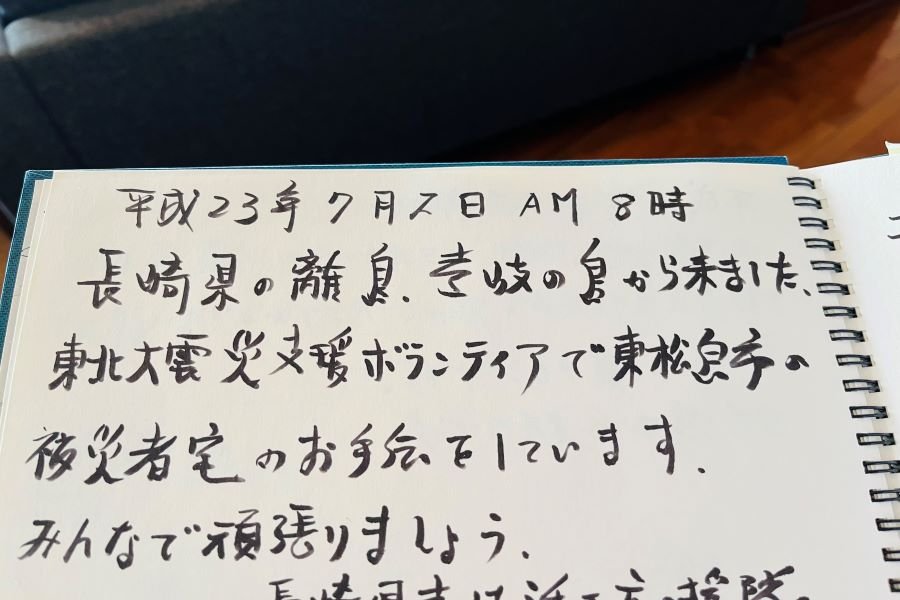 平成23年7月2日 AM 8時
長崎県の離島、壱岐の島から来ました、
東北大震災支援ボランティアで東松島市の
被災者宅のお手伝をしています.
みんなで頑張りましょう.
長崎県